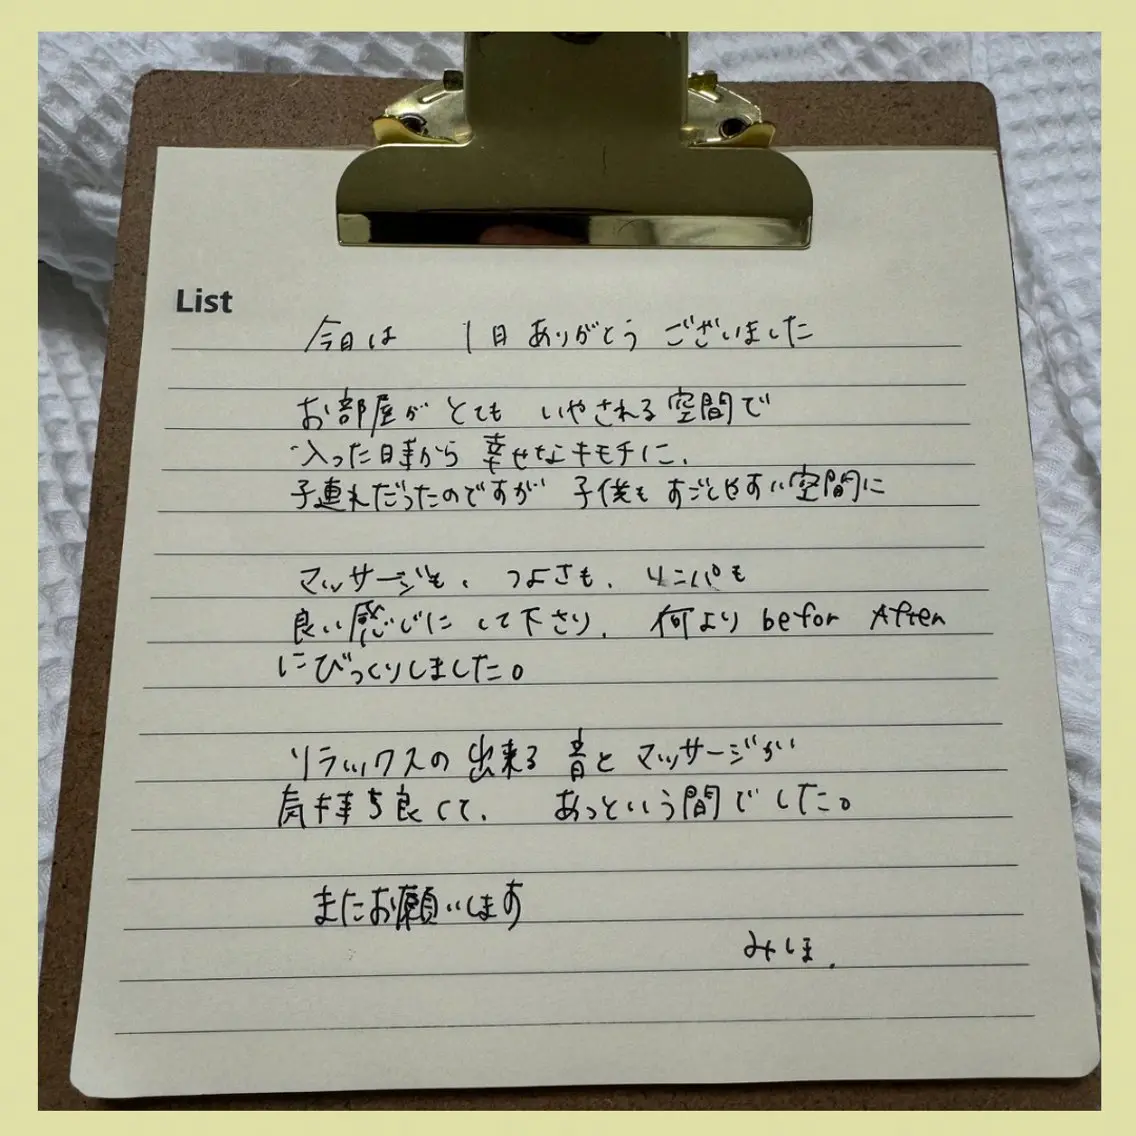 List
今日は 1日ありがとうございました
お部屋がとても いやされる空間で
入った時から 幸せなキモチに、
子連れだったのですが 子供もすごしやすい空間に
マッサージも、つよさも、リンパも
良い感じにして下さり、何より befor After
にびっくりしました。
リラックスの出来る音とマッサージが
気持ち良くて、 あっという間でした。
またお願いします
みほ.